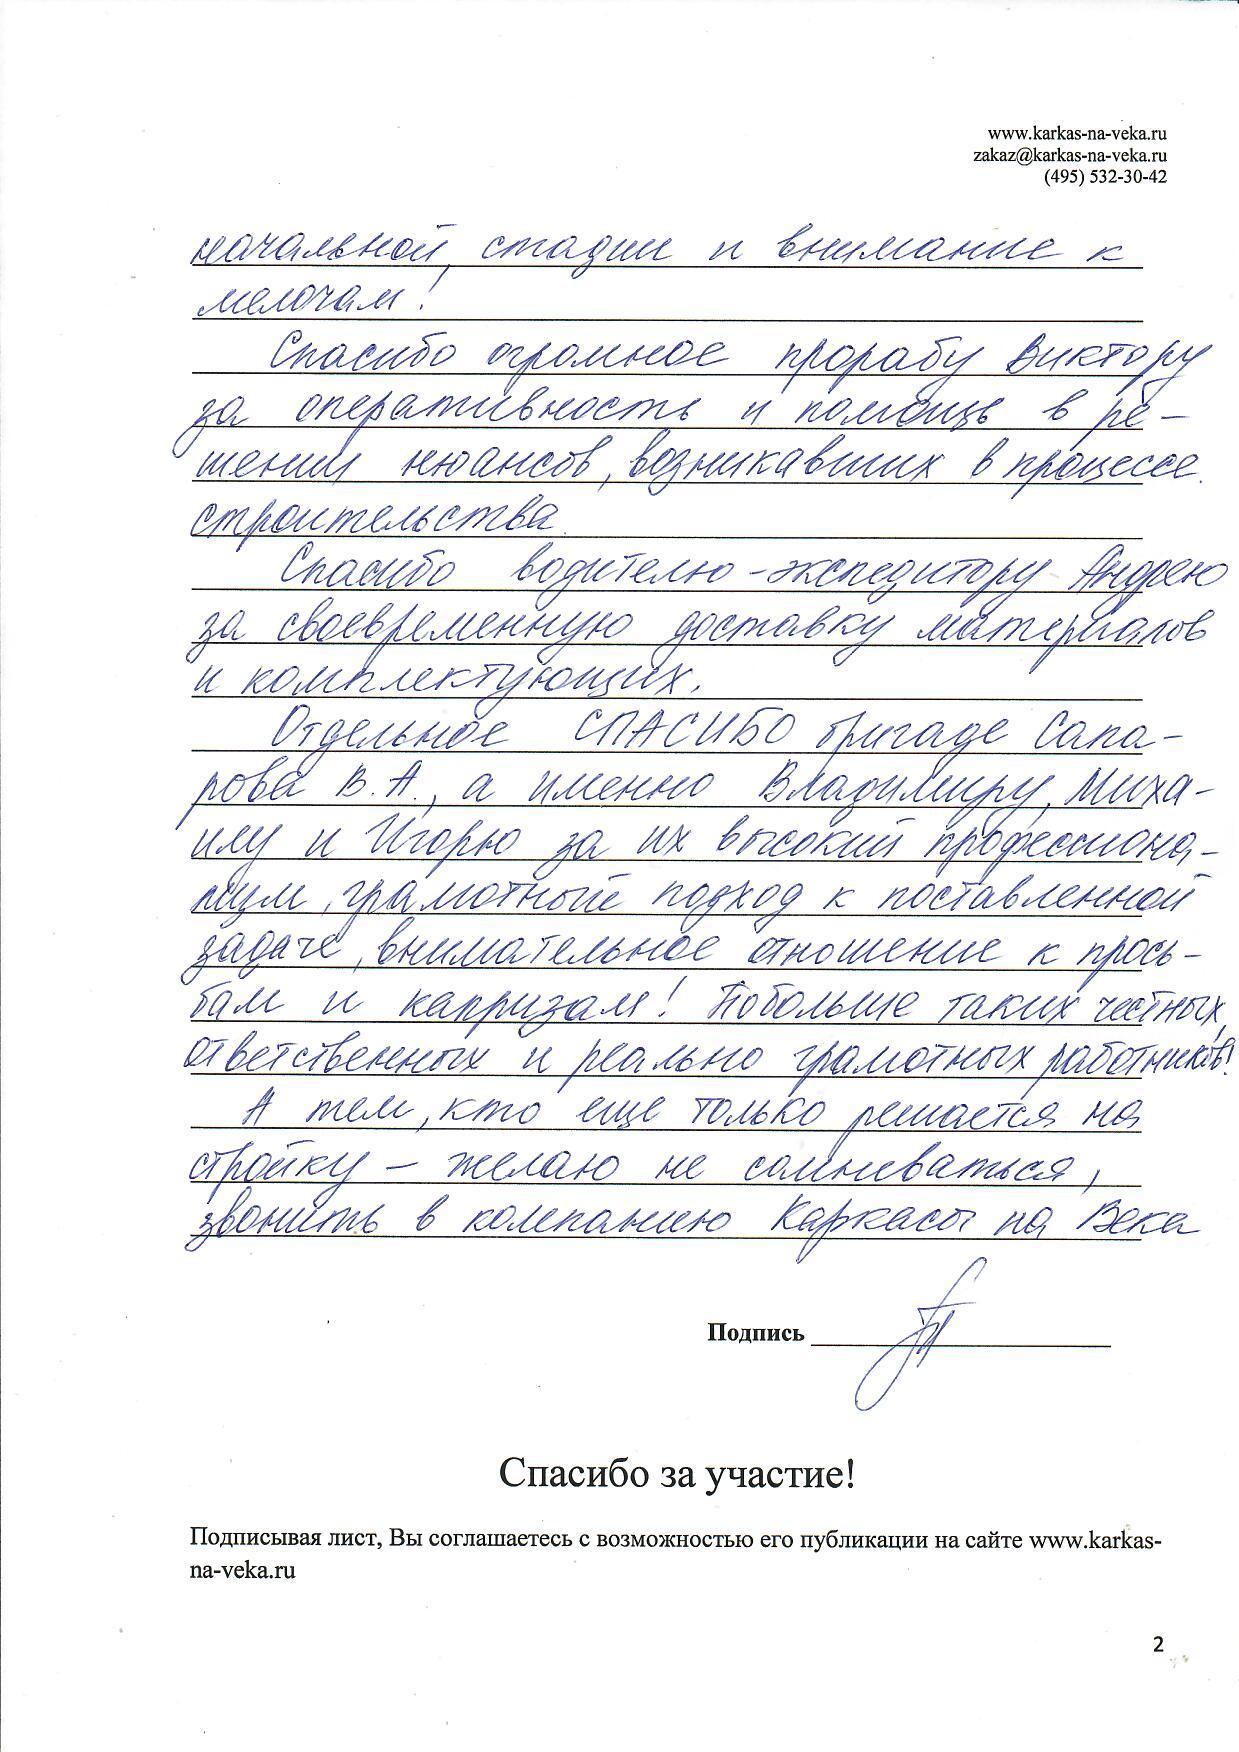 www.karkas-na-veka.ru
zakaz@karkas-na-veka.ru
(495) 532-30-42
начальной, стадии и внимание к
мелочам!
Спасибо огромное прорабу Виктору
за оперативность и помощь в ре-
шении нюансов, возникавших в процессе
строительства.
Спасибо водителю-экспедитору Андрею
за своевременную доставку материалов
и комплектующих.
Отдельное СПАСИБО бригаде Сапа-
рова В.А., а именно Владимиру, Миха-
илу и Игорю за их высокий профессиона-
лизм, грамотный подход к поставленной
задаче, внимательное отношение к прось-
бам и капризам! Побольше таких честных,
ответственных и реально грамотных работников!
А тем, кто еще только решается на
стройку – желаю не сомневаться,
звонить в компанию Каркасы на Века
Подпись
Спасибо за участие!
Подписывая лист, Вы соглашаетесь с возможностью его публикации на сайте www.karkas-
na-veka.ru
2